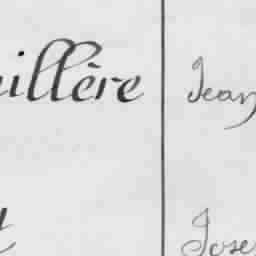 illère Jean
Jose